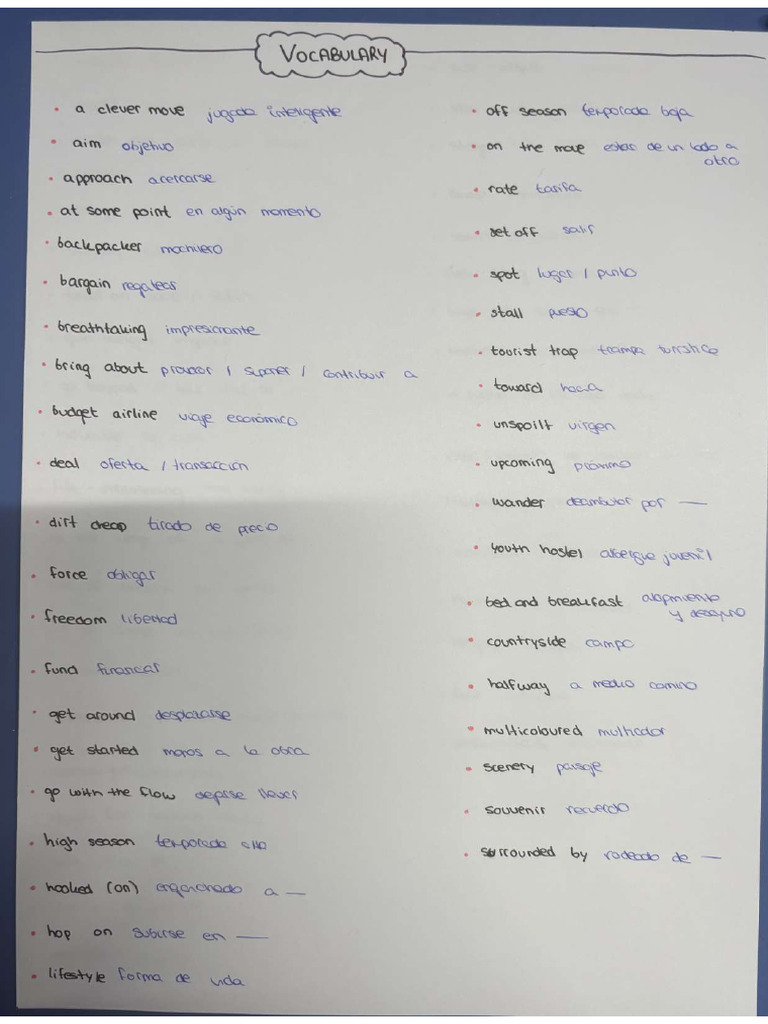 VOCABULARY
• a clever move jugada inteligente
• aim objetivo
• approach acercarse
• at some point en algún momento
• backpacker mochilero
• bargain regatear
• breathtaking impresionante
• bring about provocar / suponer / contribuir a
• budget airline viaje económico
• deal oferta / transacción
• dirt cheap tirado de precio
• force obligar
• freedom libertad
• fund financiar
• get around desplazarse
• get started manos a la obra
• go with the flow dejarse llevar
• high season temporada alta
• hooked (on) enganchado a —
• hop on subirse en —
• lifestyle forma de vida
• off season temporada baja
• on the move estar de un lado a
otro
• rate tarifa
• set off salir
• spot lugar / punto
• stall puesto
• tourist trap trampa turística
• toward hacia
• unspoilt virgen
• upcoming próximo
• wander deambular por —
• youth hostel albergue juvenil
• bed and breakfast alojamiento
y desayuno
• countryside campo
• halfway a medio camino
• multicoloured multicolor
• scenery paisaje
• souvenir recuerdo
• surrounded by rodeado de —